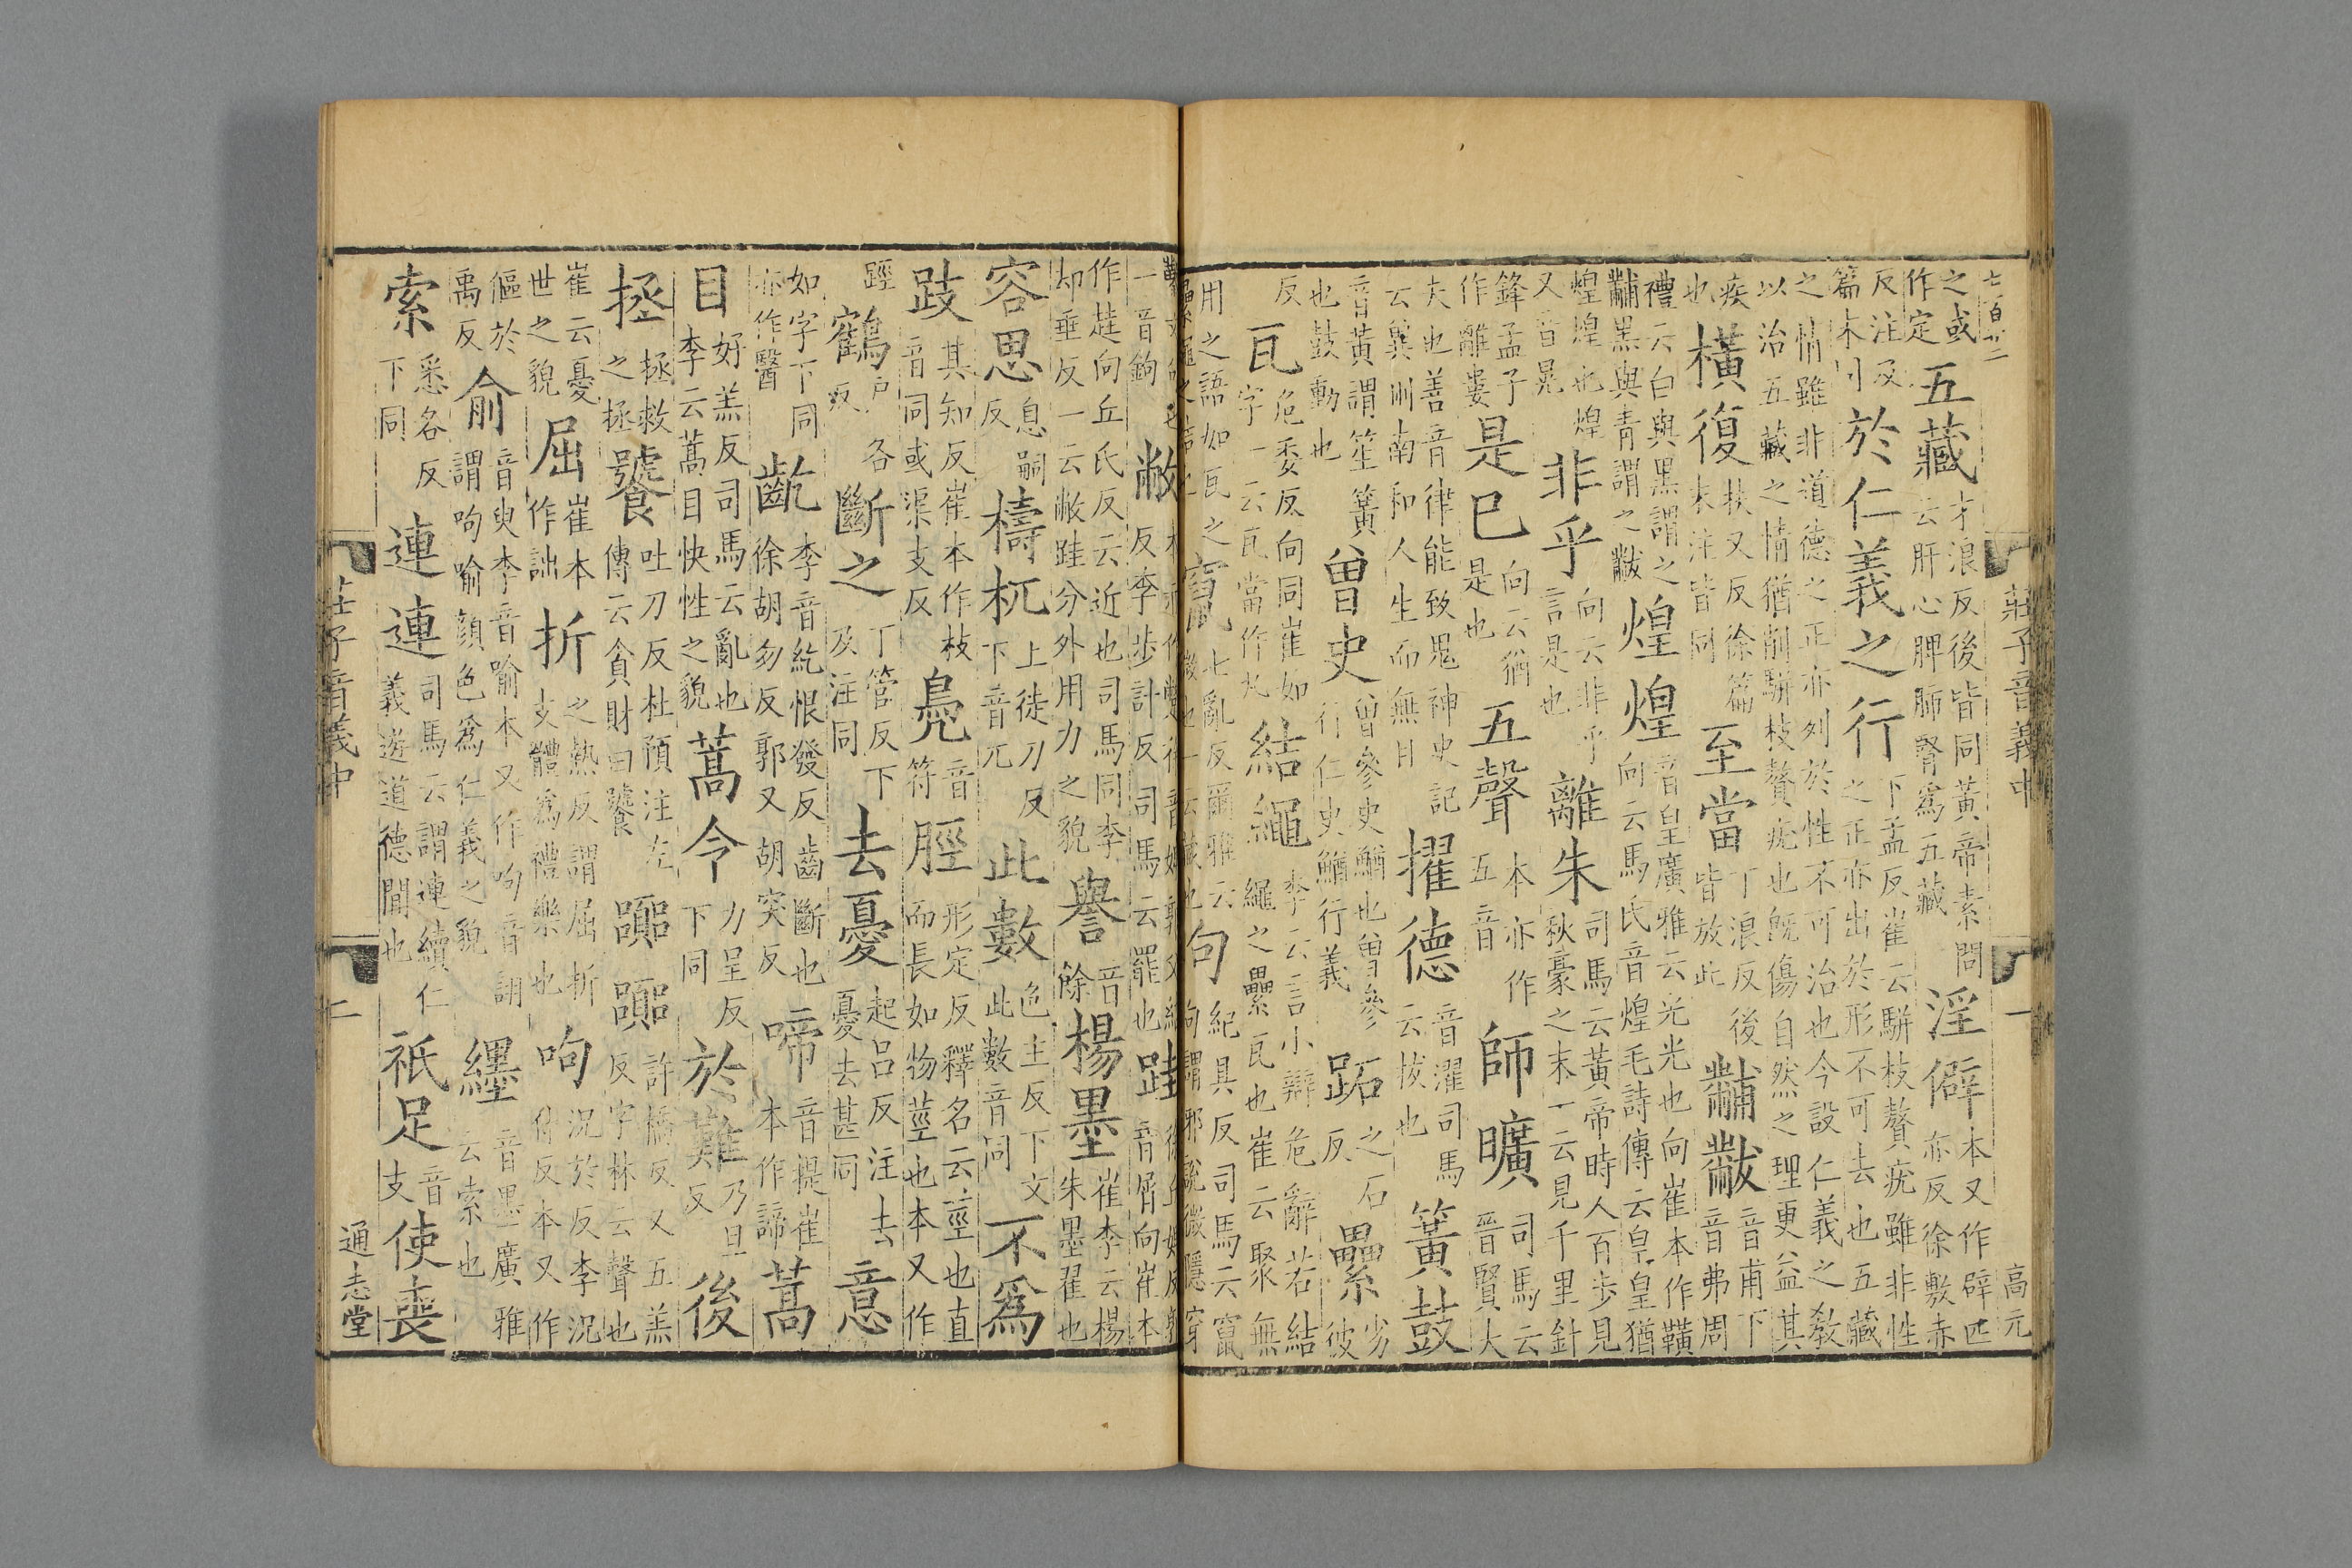 七百廿二 莊子音義中 一 高元
之或作定 五藏 才浪反後皆同黃帝素問云肝心脾肺腎爲五藏 淫僻 本又作辟匹亦反徐敷赤
反注及篇末同 於仁義之行 下孟反崔云駢枝贅疣雖非性之正亦出於形不可去也五藏
之情雖非道德之正亦列於性不可治也今設仁義之教以治五藏之情猶削駢枝贅疣也旣傷自然之理更益其
疾也 橫復 扶又反徐篇末注皆同 至當 丁浪反後皆放此 黼黻 音甫下音弗周
禮云白與黑謂之黼黑與青謂之黻 煌煌 音皇廣雅云光光也向崔本作䪄向云馬氏音煌毛詩傳云皇皇猶
煌煌也煌又音晃 非乎 向云非乎言是也 離朱 司馬云黃帝時人百步見秋豪之末一云見千里針
鋒孟子作離婁 是已 向云猶是也 五聲 本亦作五音 師曠 司馬云晉賢大
夫也善音律能致鬼神史記云冀州南和人生而無目 擢德 音濯司馬云拔也 簧鼓
音黃謂笙簧也鼓動也 曾史 曾參史鰌也曾參行仁史鰌行義 跖 之石反 纍 劣彼
反 瓦 危委反向同崔如字一云瓦當作丸 結繩 李云言小辯危辭若結繩之纍瓦也崔云聚無
用之語如瓦之纍繩之結也 竄 七亂反爾雅云微也一云藏也 句 紀具反司馬云竄句謂邪說微隱穿
鑿文句也一音鉤 敝 本亦作蹩徐音婢郭父結反李步計反司馬云罷也 跬 徐丘婢反郭音屑向崔本
作䞨向丘氏反云近也司馬同李却垂反一云敝跬分外用力之貌 譽 音餘 楊墨 崔李云楊朱墨翟也
容思 息嗣反 檮杌 上徒刀反下音兀 此數 色主反下文此數音同 不爲
跂 其知反崔本作枝音同或渠支反 鳧 音符 脛 形定反釋名云莖也直而長如物莖也本又作
踁 鶴 戶各反 斷之 丁管反下及注同 去憂 起呂反注去憂去甚同 意
如字下同亦作醫 齕 李音紇恨發反齒斷也徐胡勿反郭又胡突反 啼 音提崔本作諦 蒿
目 好羔反司馬云亂也李云蒿目快性之貌 蒿令 力呈反下同 於難 乃旦反 後
拯 拯救之拯 饕 吐刀反杜預注左傳云貪財曰饕 囂囂 許橋反又五羔反字林云聲也
崔云憂世之貌 屈 崔本作詘 折 之熱反謂屈折支體爲禮樂也 呴 況於反李況付反本又作
傴於禹反 俞 音臾李音喻本又作呴音詡謂呴喻顏色爲仁義之貌 纆 音墨廣雅云索也
索 悉各反下同 連連 司馬云謂連續仁義遊道德間也 祇足 音支 使喪
莊子音義中 二 通志堂